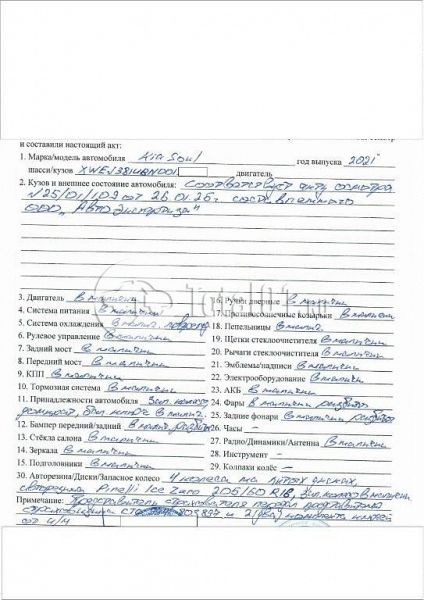 и составили настоящий акт:
1. Марка/модель автомобиля Kia Soul год выпуска 2021
шасси/кузов двигатель
2. Кузов и внешнее состояние автомобиля: Соответствует акту осмотра
от 26.01.26г.
ООО "Автоэкспертиза"
Total01.ru
3. Двигатель в наличии
4. Система питания в наличии
5. Система охлаждения в налич.
6. Рулевое управление в наличии
7. Задний мост в наличии
8. Передний мост в наличии
9. КПП в наличии
10. Тормозная система в наличии
11. Принадлежности автомобиля Зап. колесо
домкрат, бал. ключ в налич.
12. Бампер передний/задний в налич.
13. Стёкла салона в наличии
14. Зеркала в наличии
15. Подголовники в наличии
16. Ручки дверные в наличии
17. Противосолнечные козырьки в наличии
18. Пепельницы в налич.
19. Щетки стеклоочистителя в наличии
20. Рычаги стеклоочистителей в наличии
21. Эмблемы/надписи в наличии
22. Электрооборудование в наличии
23. АКБ в наличии
24. Фары в наличии разбиты
25. Задние фонари в наличии
26. Часы –
27. Радио/Динамики/Антенна в наличии
28. Инструмент –
29. Колпаки колёс –
30. Авторезина/Диски/Запасное колесо 4 колеса на литых дисках,
авторезина Pirelli Ice Zero 205/60 R16, зап. колесо в наличии
Примечание: Представитель страхователя передал представителю
страховщика и 2 (два) комплекта ключей
от а/м